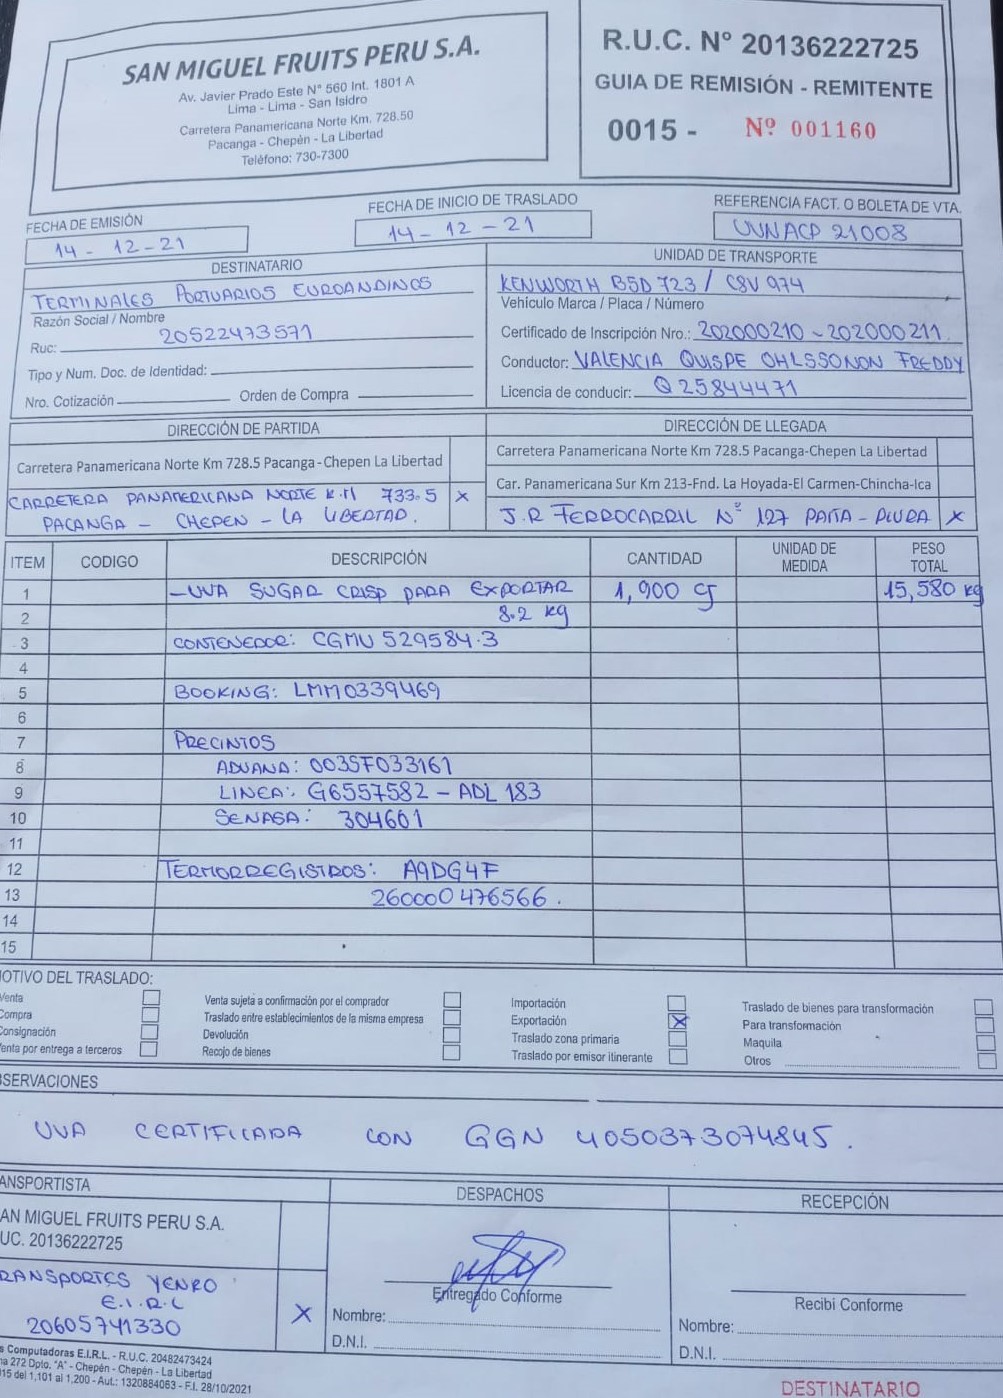 SAN MIGUEL FRUITS PERU S.A.
Av. Javier Prado Este N° 560 Int. 1801 A
Lima - Lima - San Isidro
Carretera Panamericana Norte Km. 728.50
Pacanga - Chepén - La Libertad
Teléfono: 730-7300
R.U.C. N° 20136222725
GUIA DE REMISIÓN - REMITENTE
0015 - Nº 001160
FECHA DE EMISIÓN
14 - 12 - 21
FECHA DE INICIO DE TRASLADO
14 - 12 - 21
REFERENCIA FACT. O BOLETA DE VTA.
UVNACP 21008
DESTINATARIO
TERMINALES PORTUARIOS EUROANDINOS
Razón Social / Nombre
Ruc: 20522473571
Tipo y Num. Doc. de Identidad:
Nro. Cotización Orden de Compra
UNIDAD DE TRANSPORTE
KENWORTH B5D 723 / C8V 974
Vehículo Marca / Placa / Número
Certificado de Inscripción Nro.: 202000210 - 202000211
Conductor: VALENCIA QUISPE OHLSSONON FREDDY
Licencia de conducir: Q25844471
DIRECCIÓN DE PARTIDA
Carretera Panamericana Norte Km 728.5 Pacanga-Chepen La Libertad
CARRETERA PANAMERICANA NORTE K.M 733.5 X
PACANGA - CHEPEN - LA LIBERTAD.
DIRECCIÓN DE LLEGADA
Carretera Panamericana Norte Km 728.5 Pacanga-Chepen La Libertad
Car. Panamericana Sur Km 213-Fnd. La Hoyada-El Carmen-Chincha-Ica
J.R FERROCARRIL Nº 127 PAITA - PIURA X
ITEM CODIGO DESCRIPCIÓN CANTIDAD UNIDAD DE MEDIDA PESO TOTAL
1 -UVA SUGAR CRISP PARA EXPORTAR 1,900 CJ 15,580 kg
2 8.2 kg
3 CONTENEDOR: CGMU 529584-3
4
5 BOOKING: LMM0339469
6
7 PRECINTOS
8 ADUANA: 0035F033161
9 LINEA: G6557582 - ADL 183
10 SENASA: 304601
11
12 TERMORREGISTROS: A9DG4F
13 260000476566.
14
15
OTIVO DEL TRASLADO:
Venta
Compra
Consignación
Venta por entrega a terceros
Venta sujeta a confirmación por el comprador
Traslado entre establecimientos de la misma empresa
Devolución
Recojo de bienes
Importación
Exportación X
Traslado zona primaria
Traslado por emisor itinerante
Traslado de bienes para transformación
Para transformación
Maquila
Otros
BSERVACIONES
UVA CERTIFICADA CON GGN 4050373074845.
ANSPORTISTA
AN MIGUEL FRUITS PERU S.A.
UC. 20136222725
RANSPORTES YENRO
E.I.R.L
20605741330
X
DESPACHOS
Entregado Conforme
Nombre:
D.N.I.
RECEPCIÓN
Recibi Conforme
Nombre:
D.N.I.
s Computadoras E.I.R.L. - R.U.C. 20482473424
na 272 Dpto. "A" - Chepén - Chepén - La Libertad
15 del 1,101 al 1,200 - Aut.: 1320884063 - F.I. 28/10/2021
DESTINATARIO